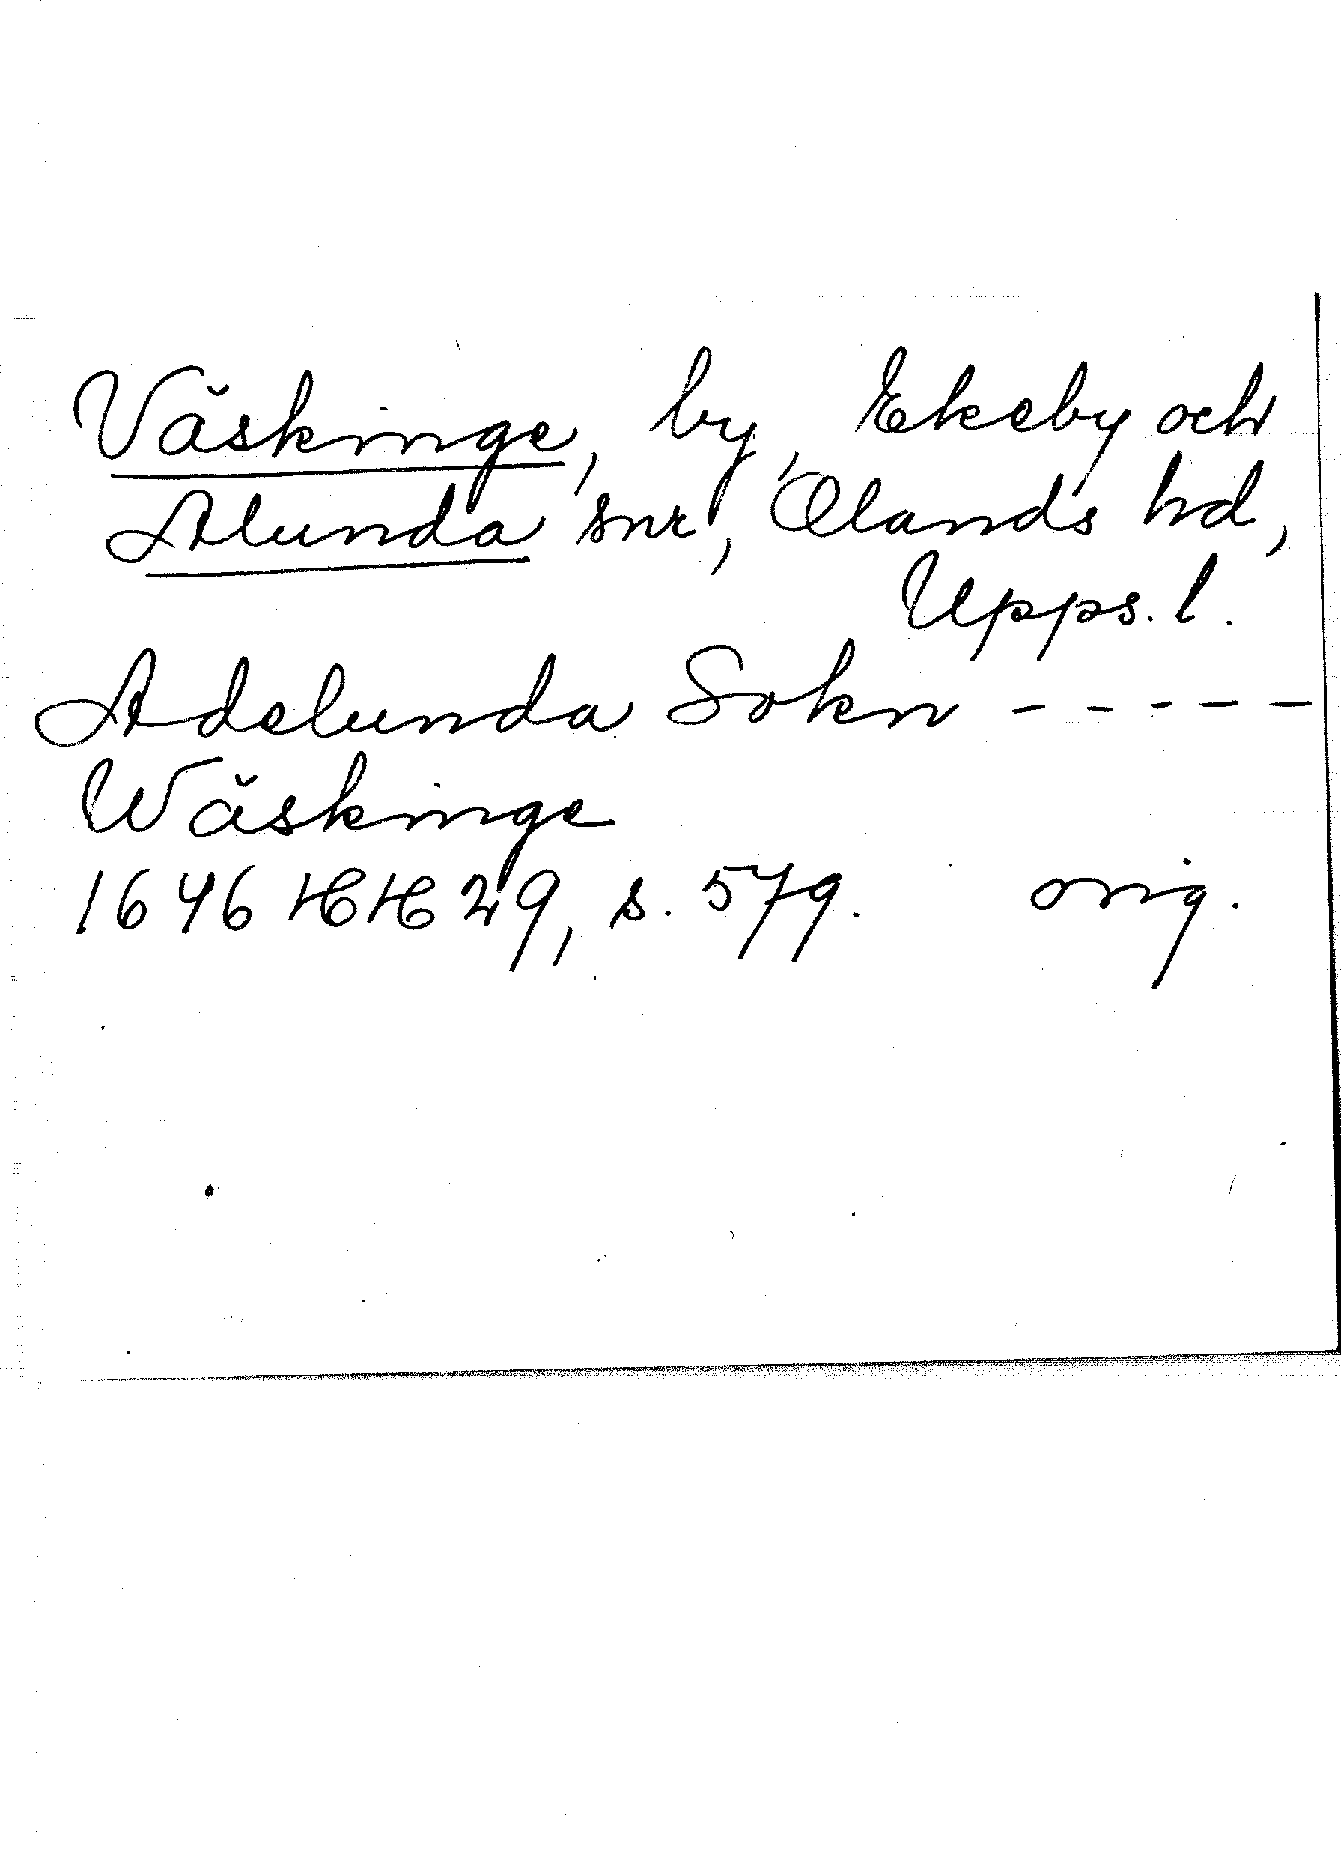 Väskinge, by, Ekeby och
Alunda snr, Olands hd,
Upps. l.
Adelunda Sokn - - - - -
Wäskinge
1646 HH 29, s. 579. orig.